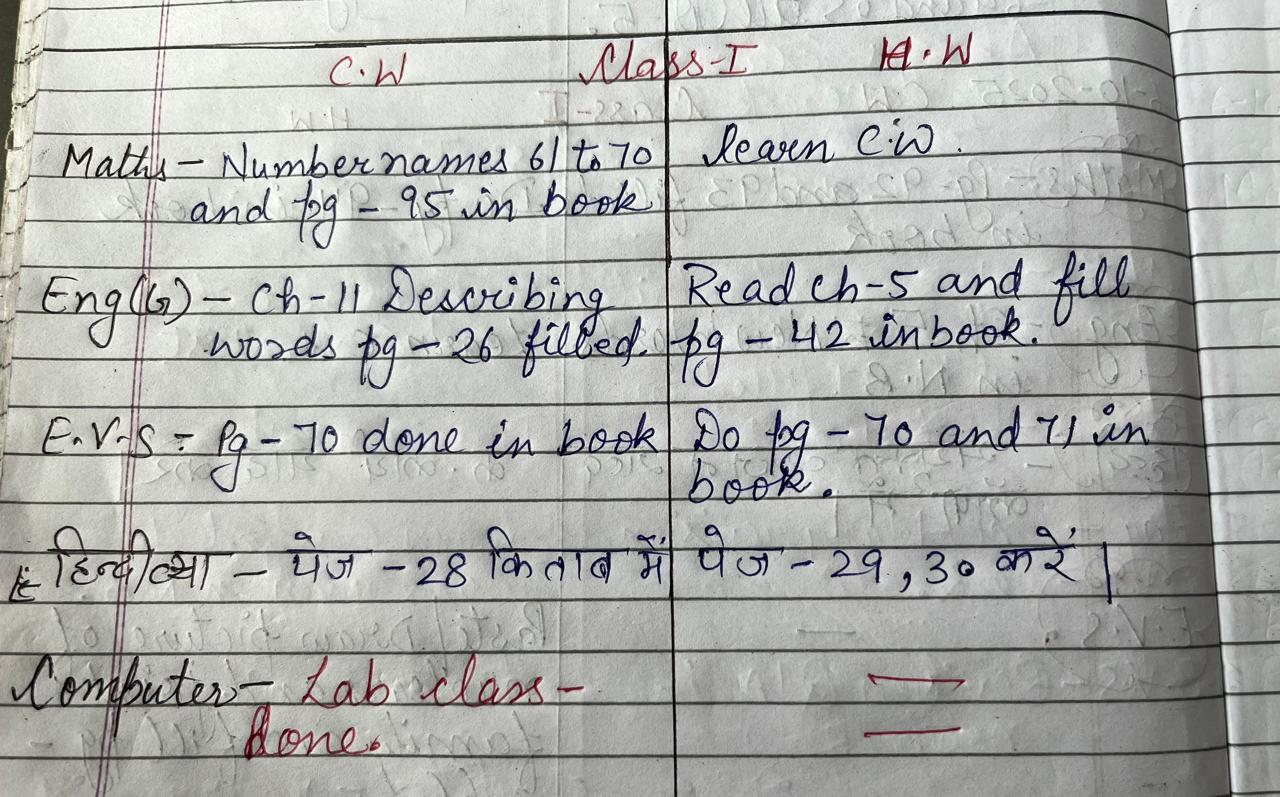 C.W Class-I H.W
Maths - Number names 61 to 70 learn C.W.
and pg - 95 in book
Eng(G) - Ch-11 Describing Read ch-5 and fill
words pg - 26 filled. pg - 42 in book.
E.V.S - Pg - 70 done in book Do pg - 70 and 71 in
book.
पेज - 28 किताब में पेज - 29, 30 करें।
Computer - Lab class -
done.